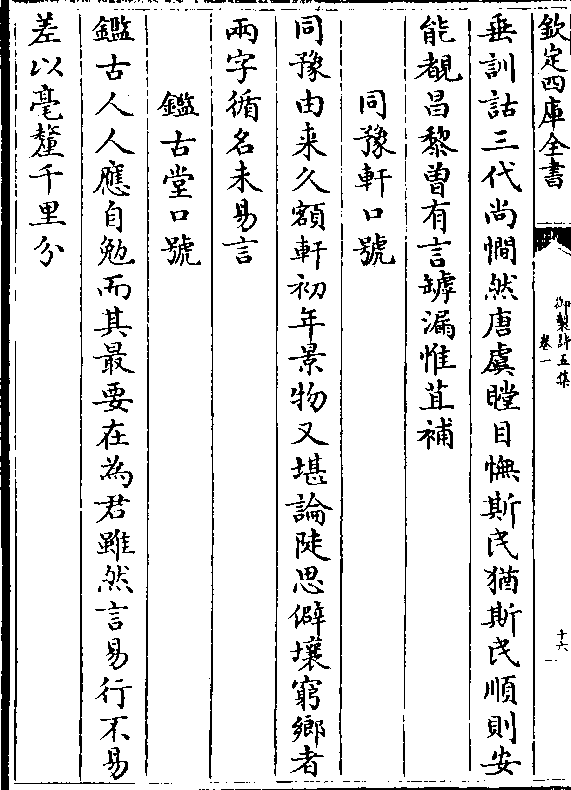 欽定四庫全書
御製詩五集
卷一
十六
垂訓詁三代尚憪然唐虞瞠目憮斯民猶斯民順則安
能覩昌黎曽有言罅漏惟苴補
同豫軒口號
同豫由来久額軒初年景物又堪論陡思僻壤窮鄉者
兩字循名未易言
鑑古堂口號
鑑古人人應自勉而其最要在為君雖然言易行不易
差以毫釐千里分